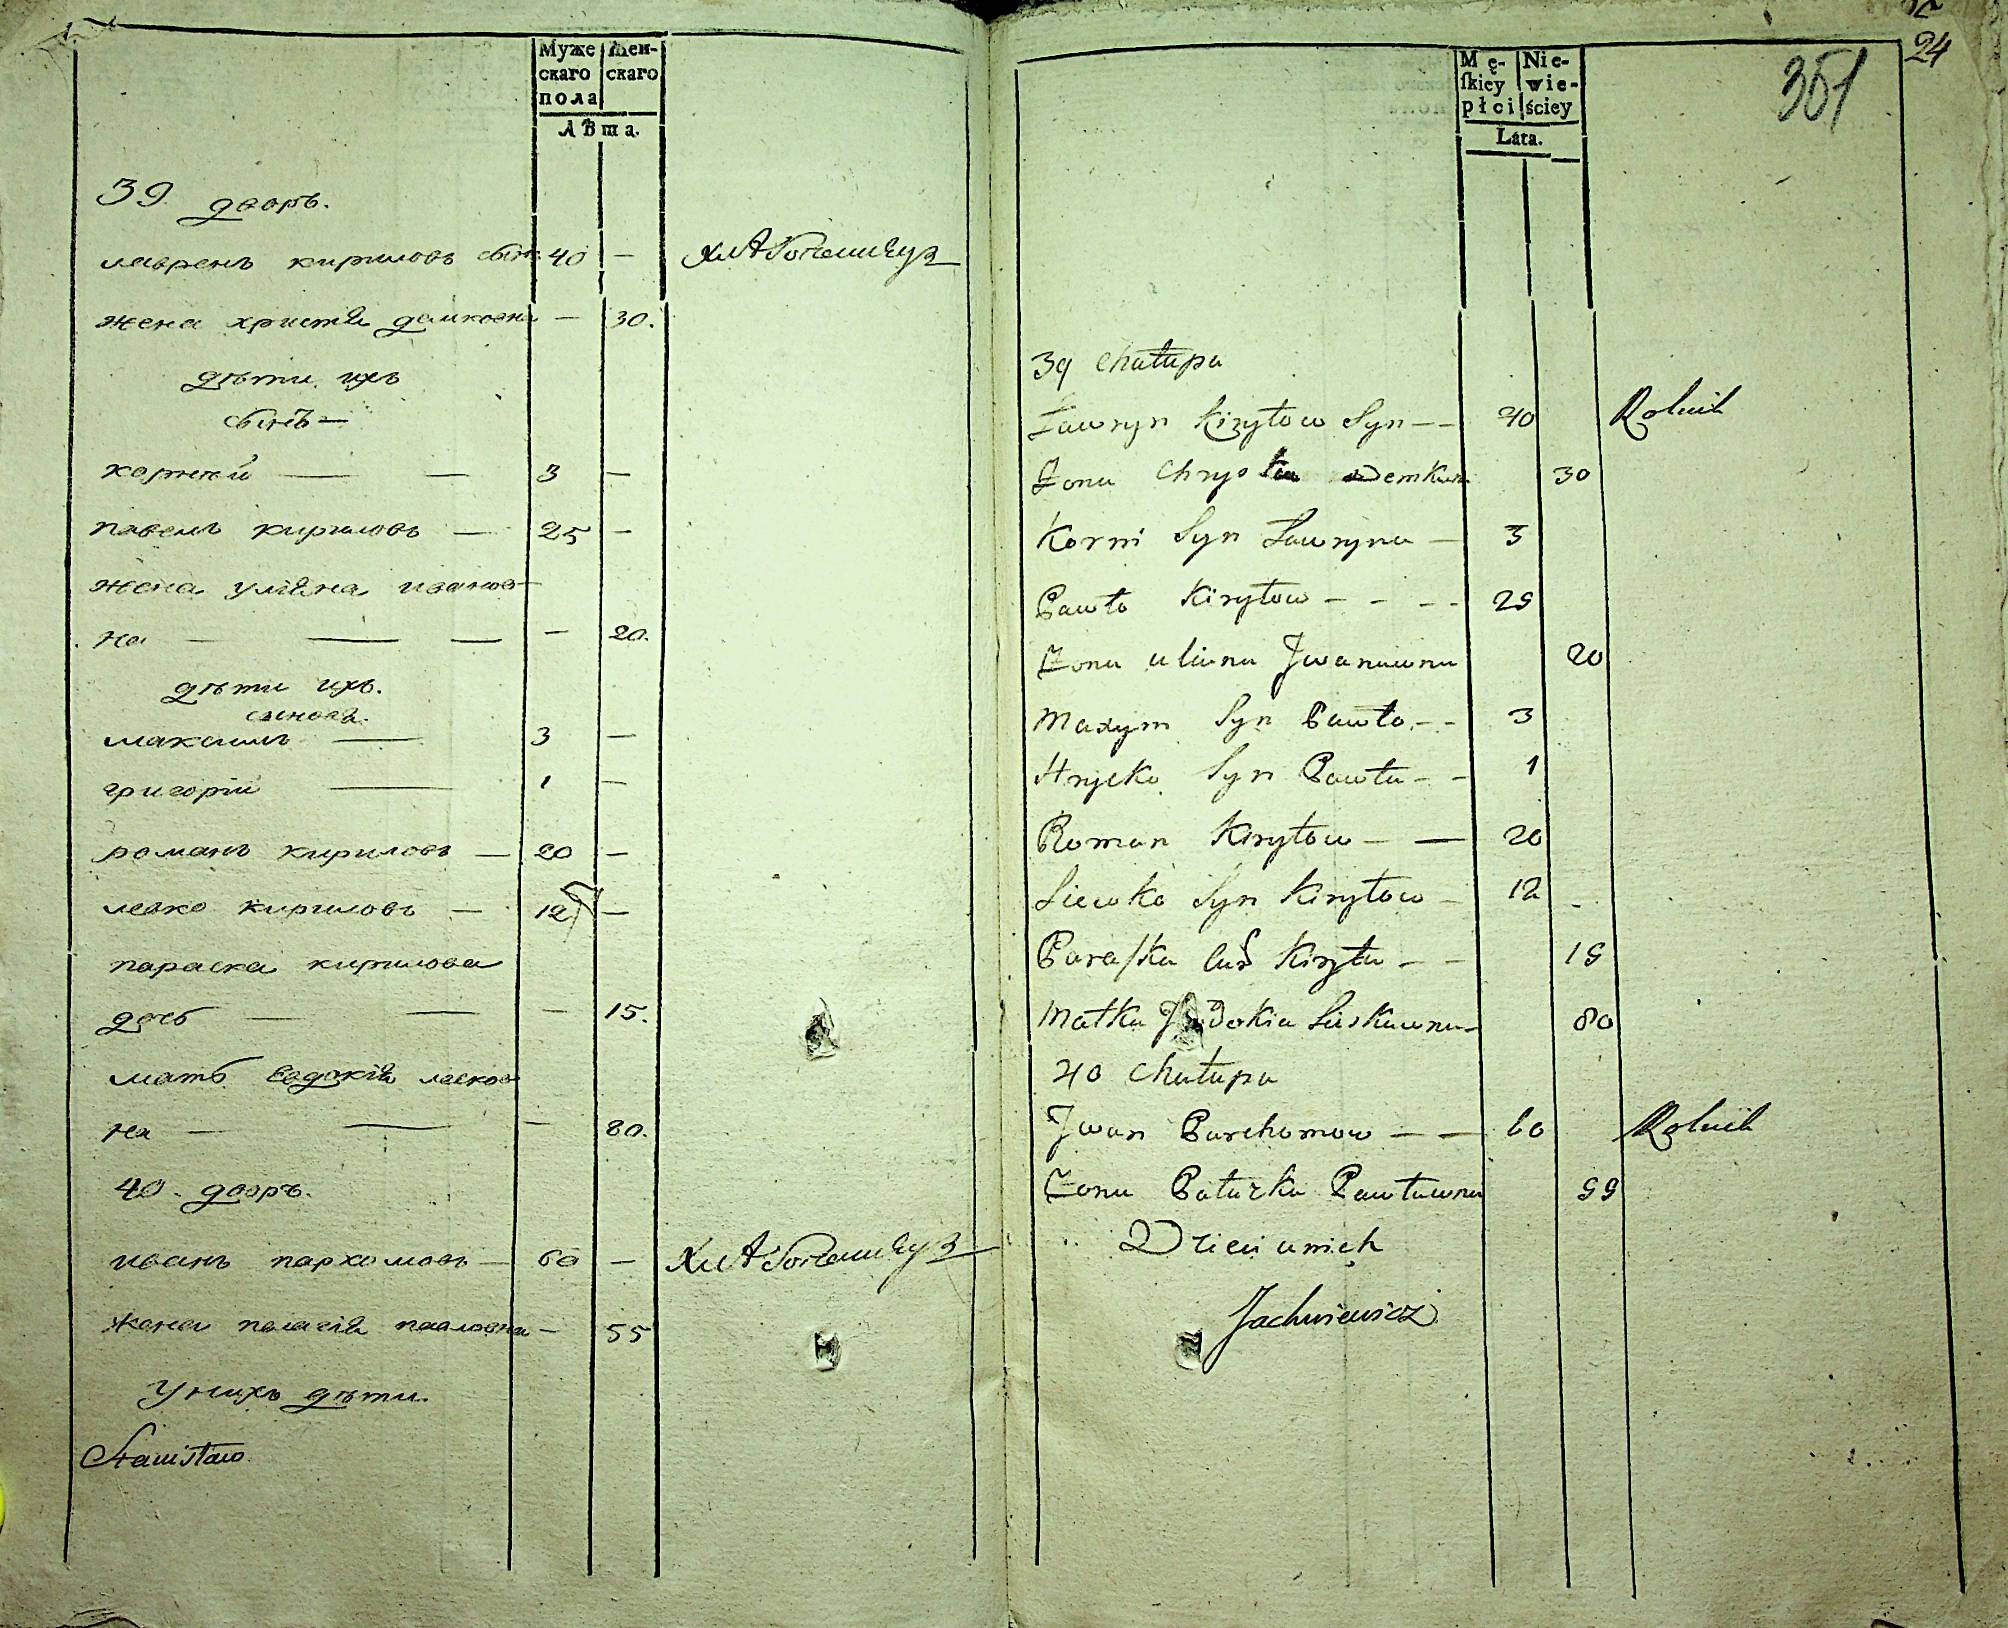 Муже скаго пола
Жен- скаго
Лѣта.
39 дворъ.
лаврень кириловъ сынъ 40 —
жена христія демковна — 30.
дѣти ихъ
сынъ —
корнѣй — — 3 —
павелъ кириловъ — 25 —
жена уліяна иванов-
на — — — — 20.
дѣти ихъ.
сыновя.
максимъ — 3 —
григорій — 1 —
романъ кириловъ — 20 —
левко кириловъ — 12 —
параска кирилова
дочь — — — 15.
мать Евдокія левков
на — — — 80.
40. дворъ.
иванъ пархомовъ — 60 —
жена пелагія павловна — 55
У нихъ дѣти.
Stanisław
24
351
Mę- skiey płci
Nie- wie- ściey
Lata.
39 Chałupa
Ławryn Kiryłow Syn — — 40 Rolnik
Żona Chrystia Demkow 30
Korni Syn Ławryna — 3
Pawło Kiryłow - - - - 25
Żona uliana Jwanawna 20
Maxym Syn Pawła - - 3
Hryćko Syn Pawła - - 1
Roman Kiryłow — — 20
Liewko Syn Kiryłow - 12 -
Paraska Kiryła - - 15
Matka Lewkawna - 80
40 Chałupa
Jwan Parchomow — — 60 Rolnik
Żona Pałazka Pawławna 55
Dzieci unich
Jachniewicz